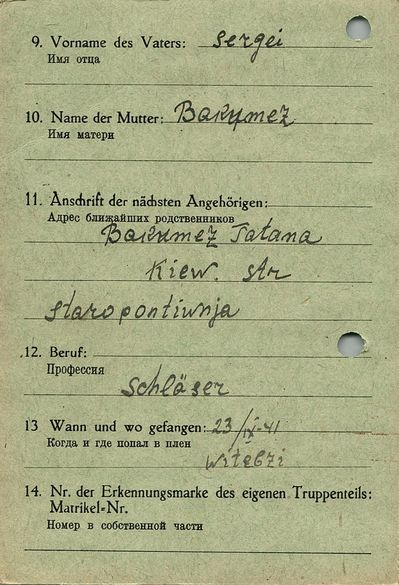 9. Vorname des Vaters: Sergei
Имя отца
10. Name der Mutter: Bakumez
Имя матери
11. Anschrift der nächsten Angehörigen:
Адрес ближайших родственников
Bakumez Tatana
Kiew. Str
Staropontiwnja
12. Beruf:
Профессия
Schläser
13 Wann und wo gefangen: 23/IX-41
Когда и где попал в плен
Witebzi
14. Nr. der Erkennungsmarke des eigenen Truppenteils:
Matrikel-Nr.
Номер в собственной части